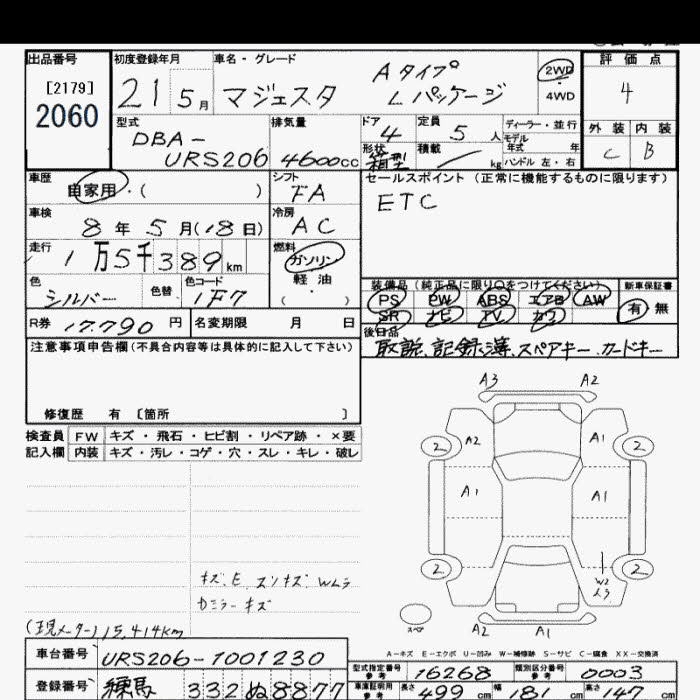 出品番号
[2179]
2060
初度登録年月
21 5月
車名・グレード
マジェスタ
Aタイプ
Lパッケージ
2WD
4WD
評価点
4
外装 内装
C B
型式
DBA-
URS206
排気量
4600cc
ドア
4
定員
5人
形状
箱型
積載
kg
ディーラー・並行
モデル
年式 年
ハンドル 左・右
車歴
自家用・( )
シフト
FA
セールスポイント(正常に機能するものに限ります)
ETC
車検
8年5月(18日)
冷房
AC
走行
1万5千389km
燃料
ガソリン
軽油
( )
色
シルバー
色替
色コード
1F7
装備品(純正品に限り○をつけてください)
PS PW ABS エアB AW
SR ナビ TV カワ
新車保証書
有 無
R券 17.790円
名変期限 月 日
後日品
取説、記録簿、スペアキー カードキー
注意事項申告欄(不具合内容等は具体的に記入して下さい)
修復歴 有 〔箇所 〕
検査員
記入欄
FW キズ・飛石・ヒビ割・リペア跡・×要
内装 キズ・汚レ・コゲ・穴・スレ・キレ・破レ
A3 A2
2 A2 A1 2
A1 A1
2 W2 2
スペア
A2 A1
キズ、E
カミラーキズ
(現メーター)15,414km
A-キズ E-エクボ U-凹み W-補修跡 S-サビ C-腐食 XX-交換済
車台番号 URS206-1001230
登録番号 練馬 332 ぬ8877
型式指定番号
参考
16268
類別区分番号
参考
0003
車庫証明用
参考
長さ 499cm 幅 181cm 高さ 147cm